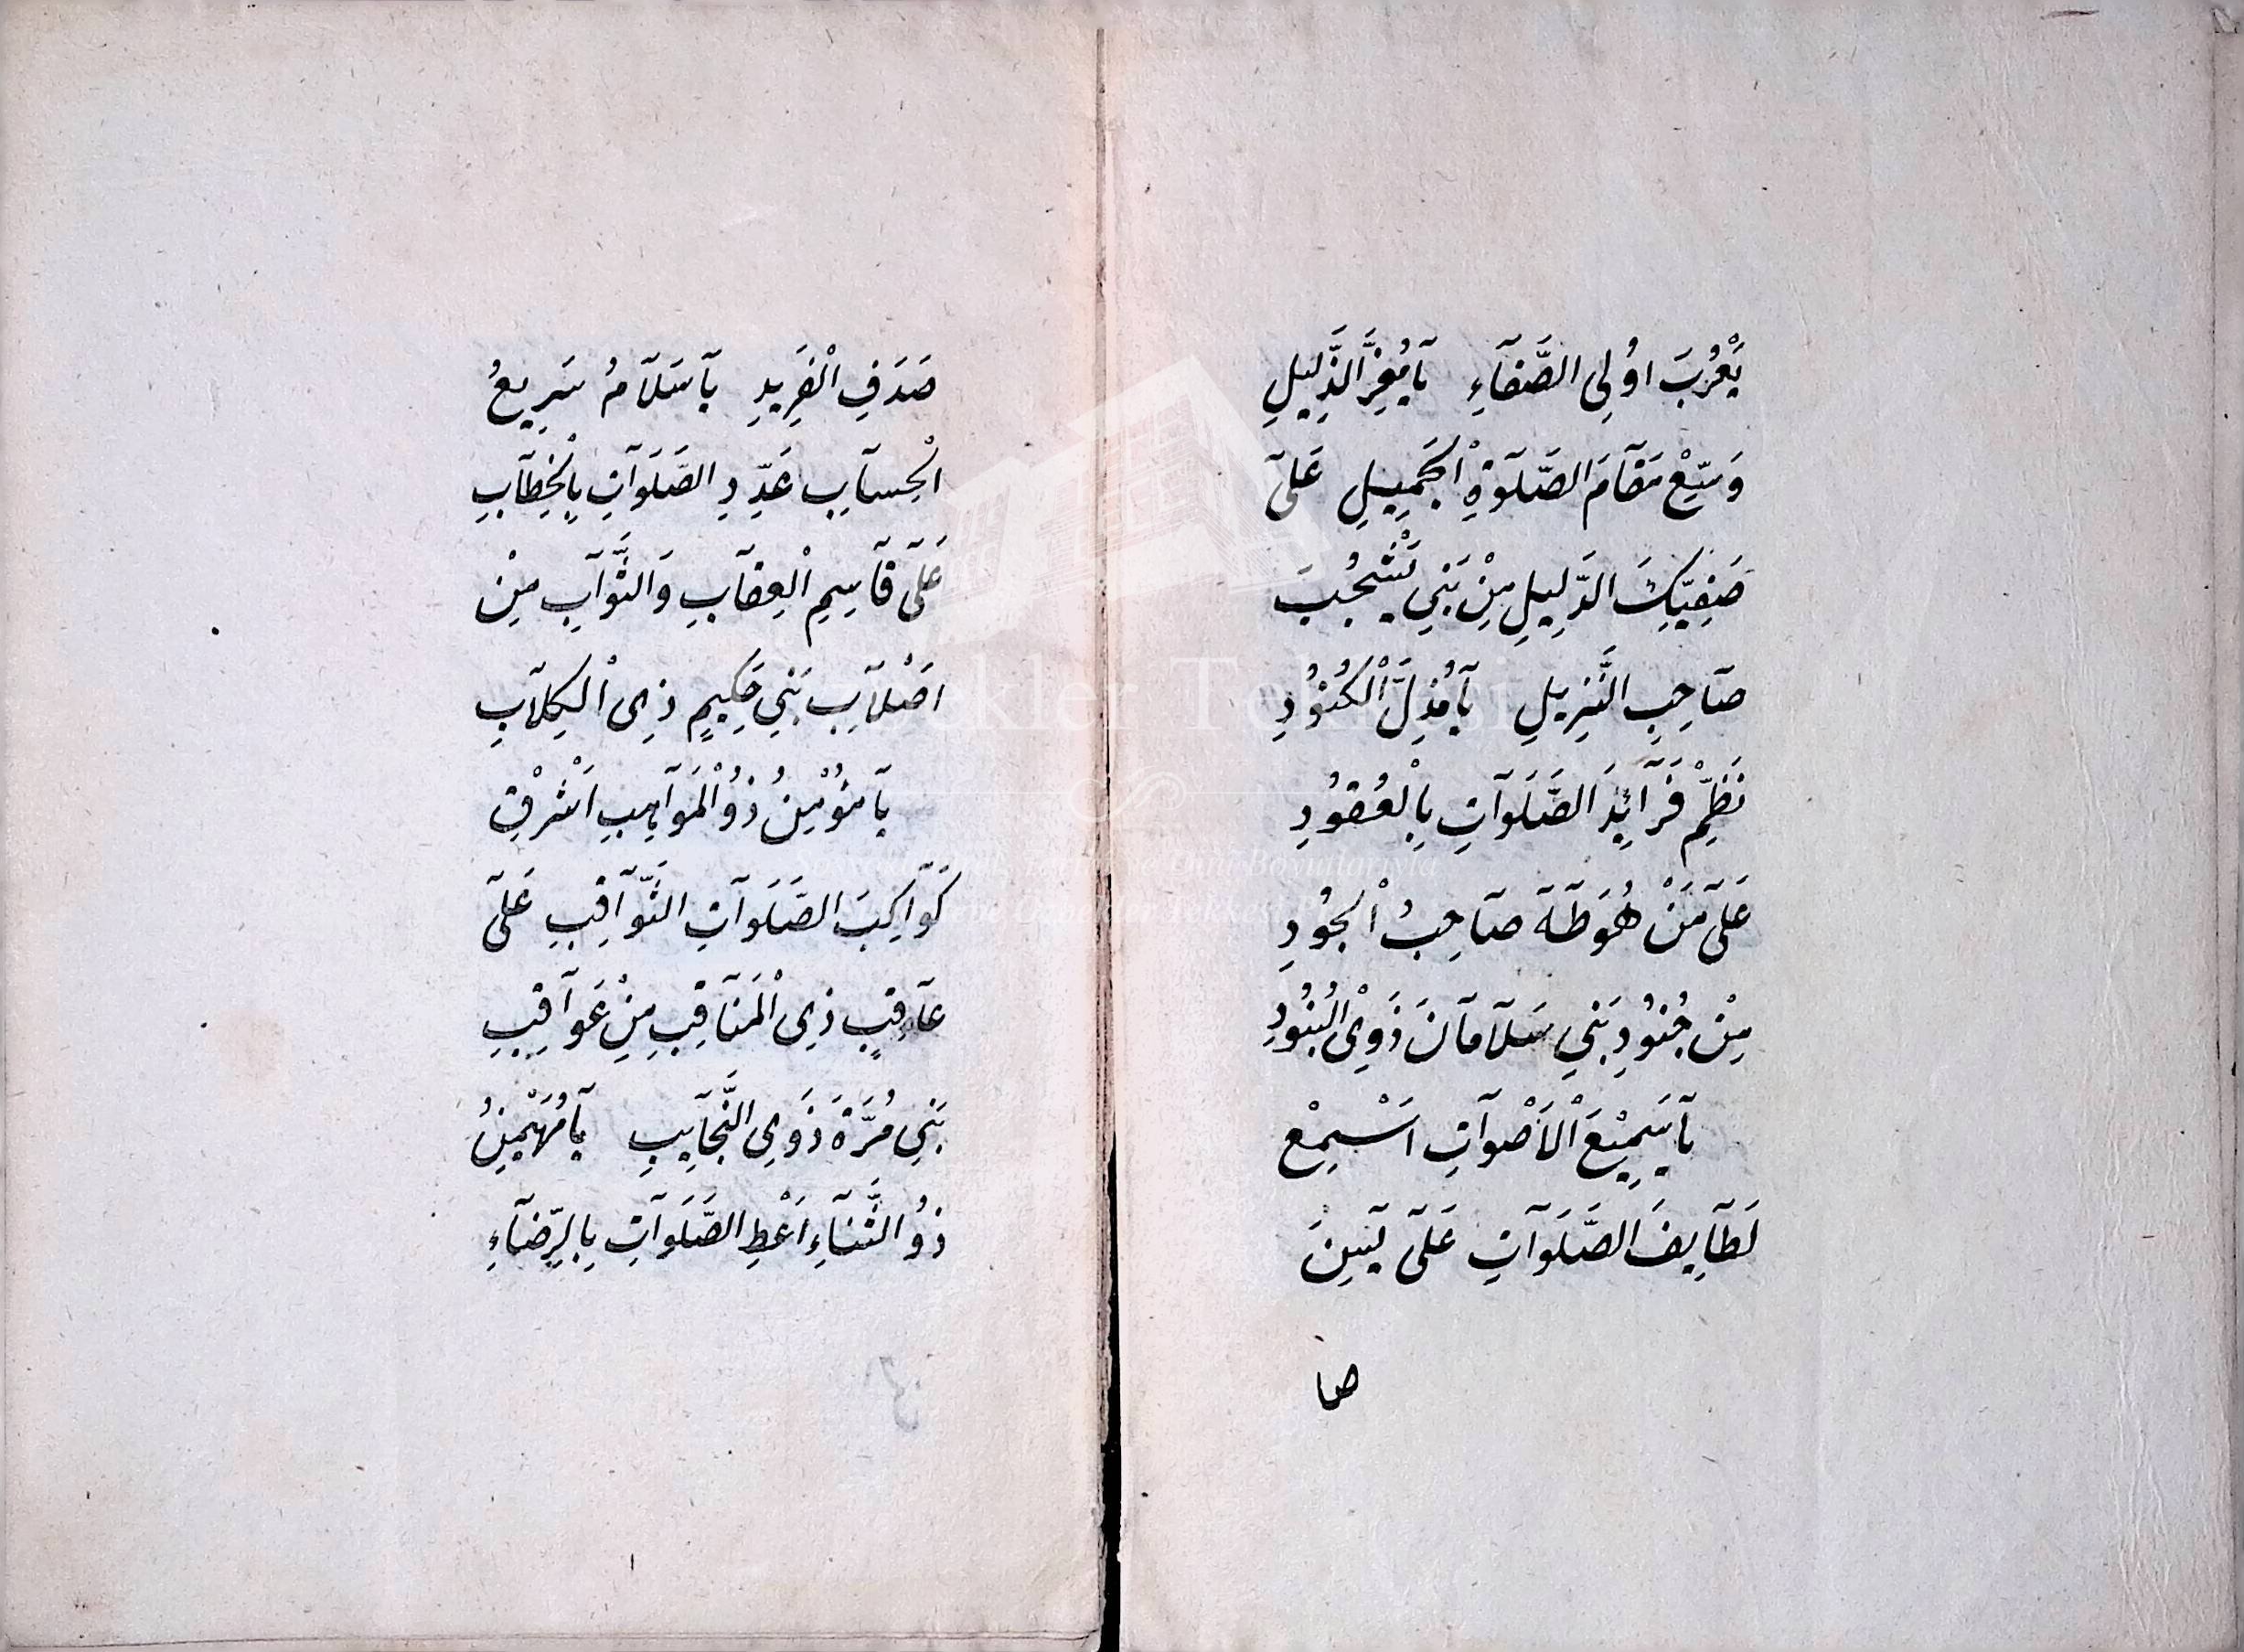 يَعْرُبَ اوُلِى الصَّفَآءِ يَآ مُعِزَّ الذَّلِيلِ
وَسِّعْ مَقَآمَ الصَّلَوٓةِ الْجَمِيلِ عَلَىٓ
صَفِيِّكَ الدَّلِيلِ مِنْ بَنِي يَشْجُبَ
صَآحِبِ التَّنزِيلِ يَآ مُذِلَّ الْكُنُوُدِ
نَظِّمْ فَرَآئِدَ الصَّلَوَآتِ بِالْعُقوُدِ
عَلَىٓ مَنْ هُوَ طَهَ صَآحِبُ الْجُودِ
مِنْ جُنوُدِ بَنِي سَلَآمَآنَ ذَوِى الْبُنوُدِ
يَآ سَمِيْعَ الْأَصْوَآتِ اَسْمِعْ
لَطَآيِفَ الصَّلَوَآتِ عَلَىٓ يٓسِنَ
صا
صَدَفِ الْفَرِيدِ يَآ سَلَآمُ سَرِيعُ
الْحِسَآبِ عَدِّدِ الصَّلَوَآتِ بِالْخِطَآبِ
عَلَىٓ قَآسِمِ الْعِقَآبِ وَالثَّوَآبِ مِنْ
اَصْلَآبِ بَنِي حَكِيمٍ ذِى الْكِلَآبِ
يَآ مُؤْمِنُ ذوُ الْمَوَآهِبِ اَشْرِقْ
كَوَآكِبَ الصَّلَوَآتِ الثَّوَآقِبِ عَلَىٓ
عَآقِبٍ ذِى الْمَنَآقِبِ مِنْ عَوَآقِبِ
بَنِي مُرَّةَ ذَوَىِ النَّجَآيِبِ يَآ مُهَيْمِنُ
ذوُ الثَّنَآءِ اَعْطِ الصَّلَوَآتِ بِالرِّضَآءِ